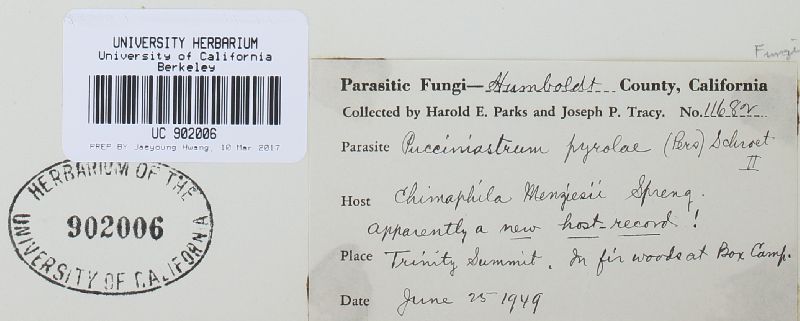 UNIVERSITY HERBARIUM
University of California
Berkeley
UC 902006
PREP BY Jaeyoung Hwang, 10 Mar 2017
HERBARIUM OF THE
902006
UNIVERSITY OF CALIFORNIA
Fungi
Parasitic Fungi—Humboldt County, California
Collected by Harold E. Parks and Joseph P. Tracy. No. 11682
Parasite Pucciniastrum pyrolae (Pers) Schroet
II
Host Chimaphila Menziesii Spreng.
apparently a new host-record!
Place Trinity Summit. In fir woods at Box Camp.
Date June 25 1949